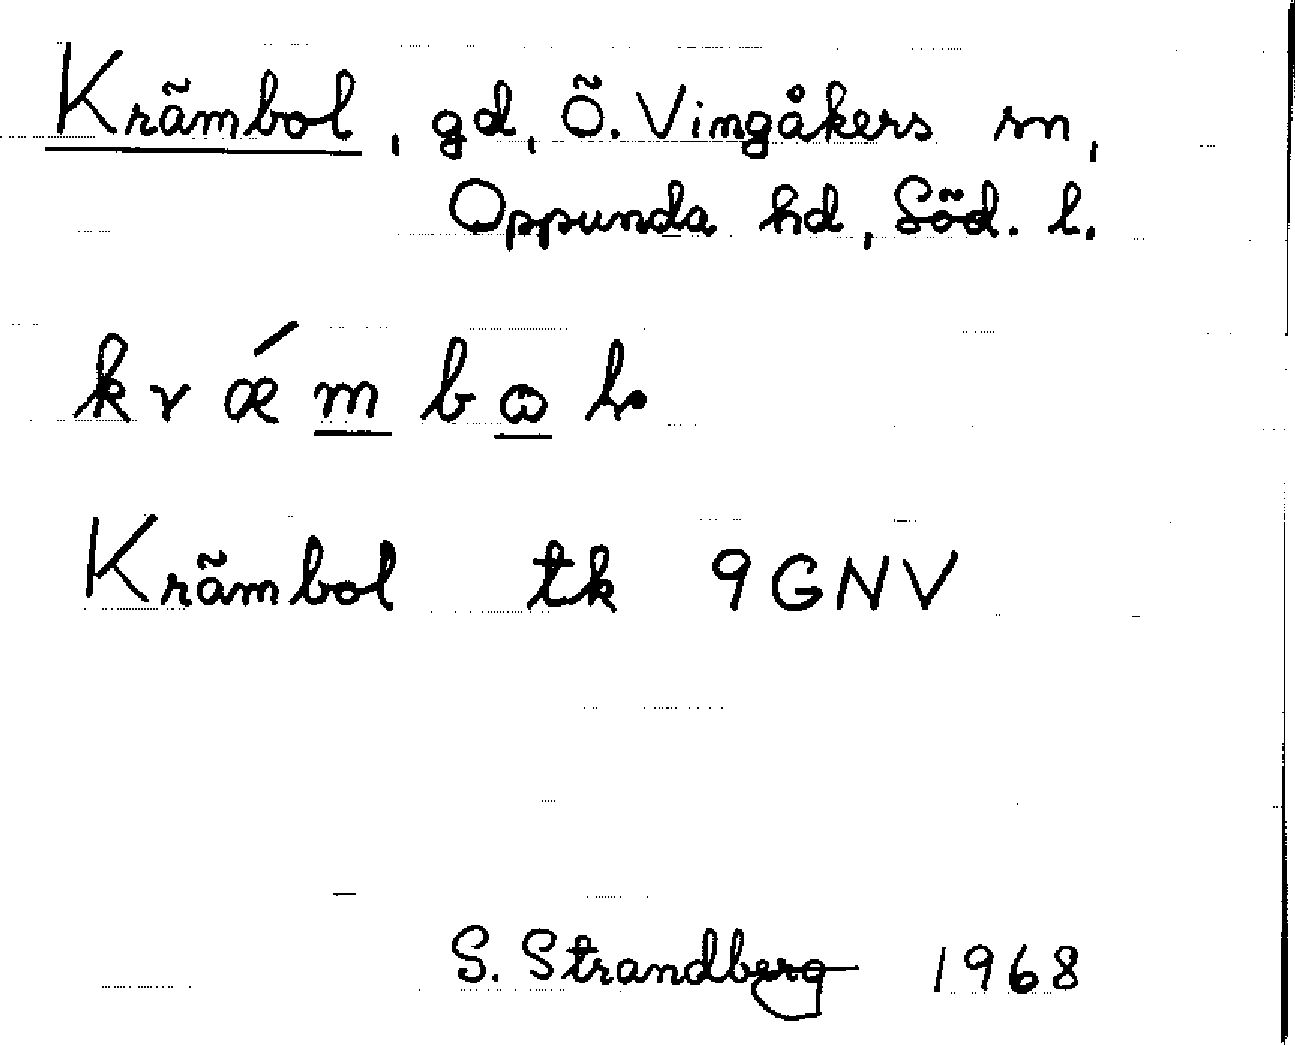 Krämbol, gd, Ö. Vingåkers sn,
Oppunda hd, Söd. l.
krǽmbɷɫ
Krämbol tk 9GNV
S. Strandberg 1968